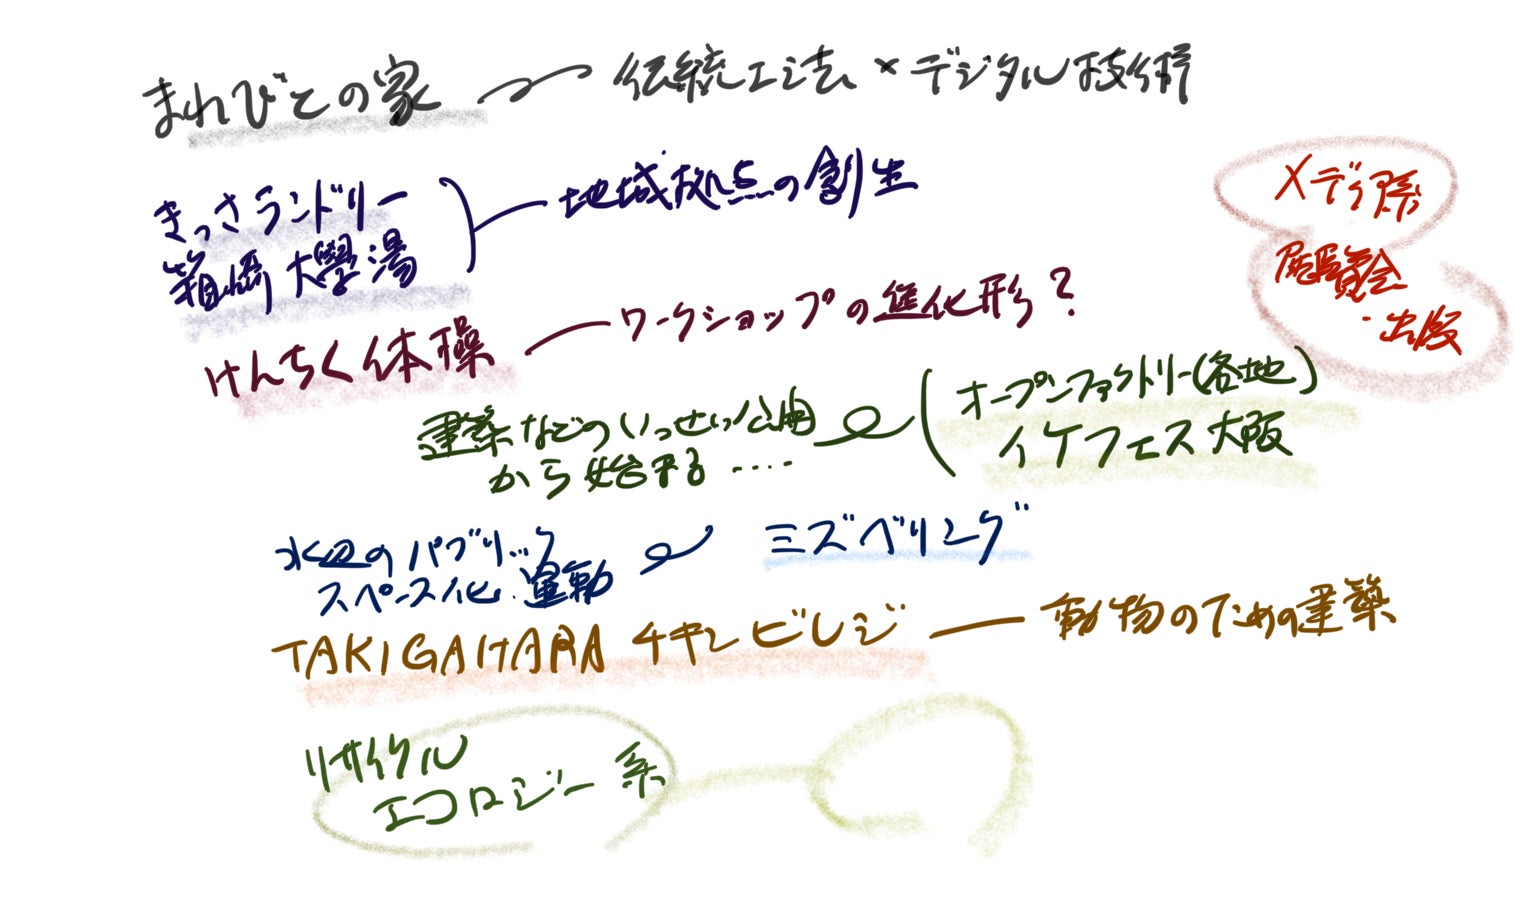 まれびとの家
伝統工法×デジタル技術
きっさランドリー
箱崎大學湯
地域拠点の創生
メディア系
展覧会
・出版
けんちく体操
ワークショップの進化形?
建築などのいっせい公開
から始まる ‥‥
オープンファクトリー(各地)
イケフェス大阪
水辺のパブリック
スペース化運動
ミズベリング
TAKIGAHARA チキンビレジ
動物のための建築
リサイクル
エコロジー系